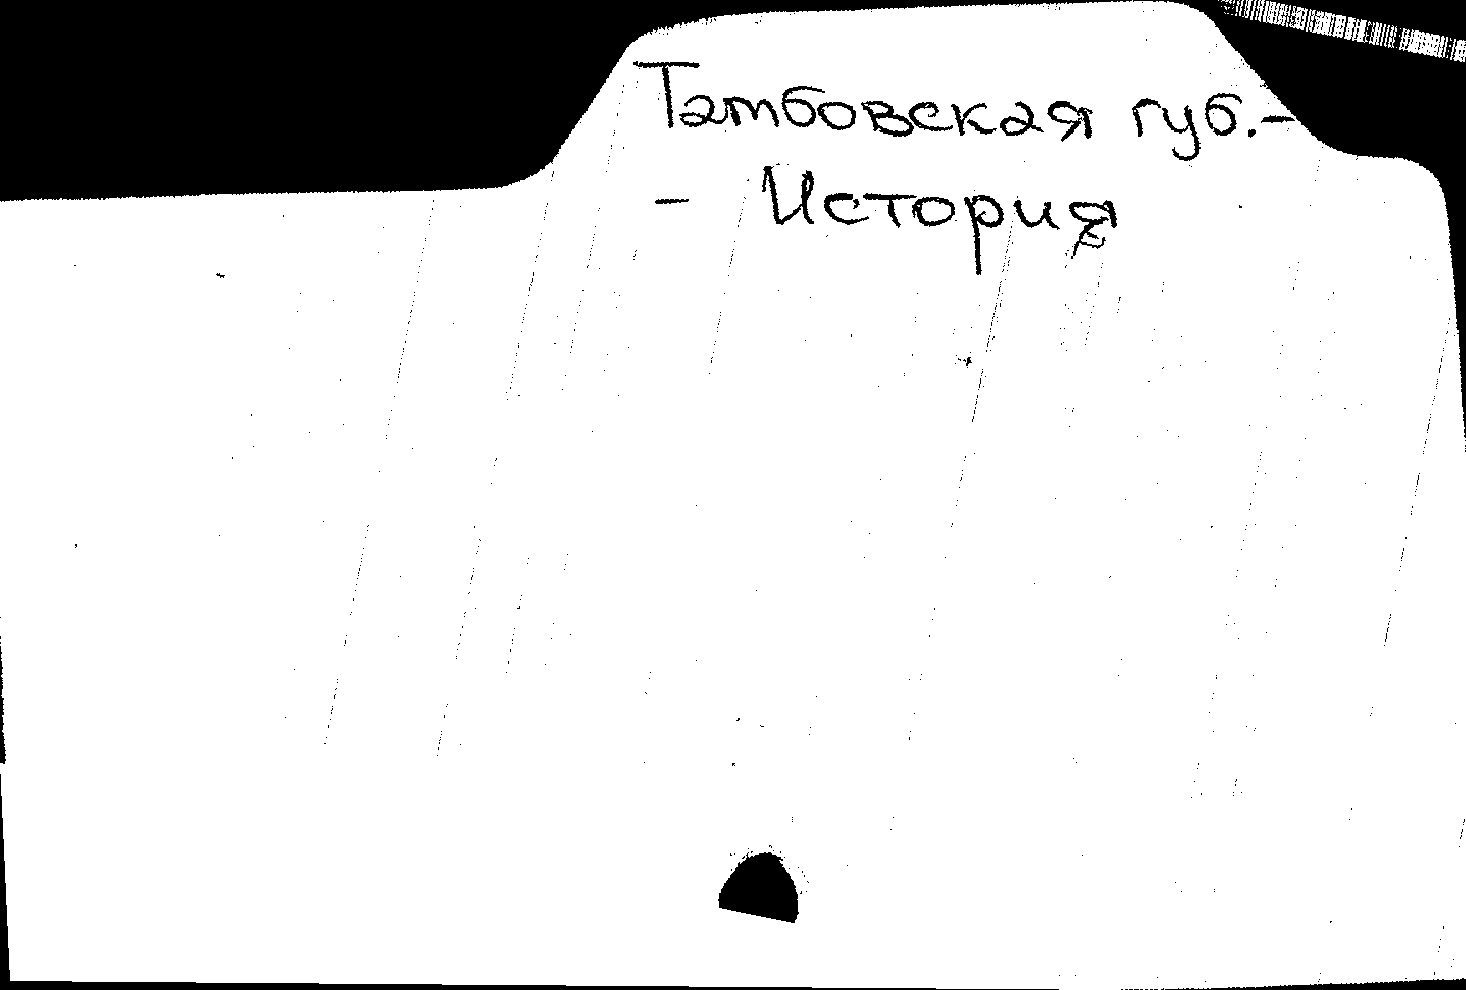 Тамбовская губ.-
- История